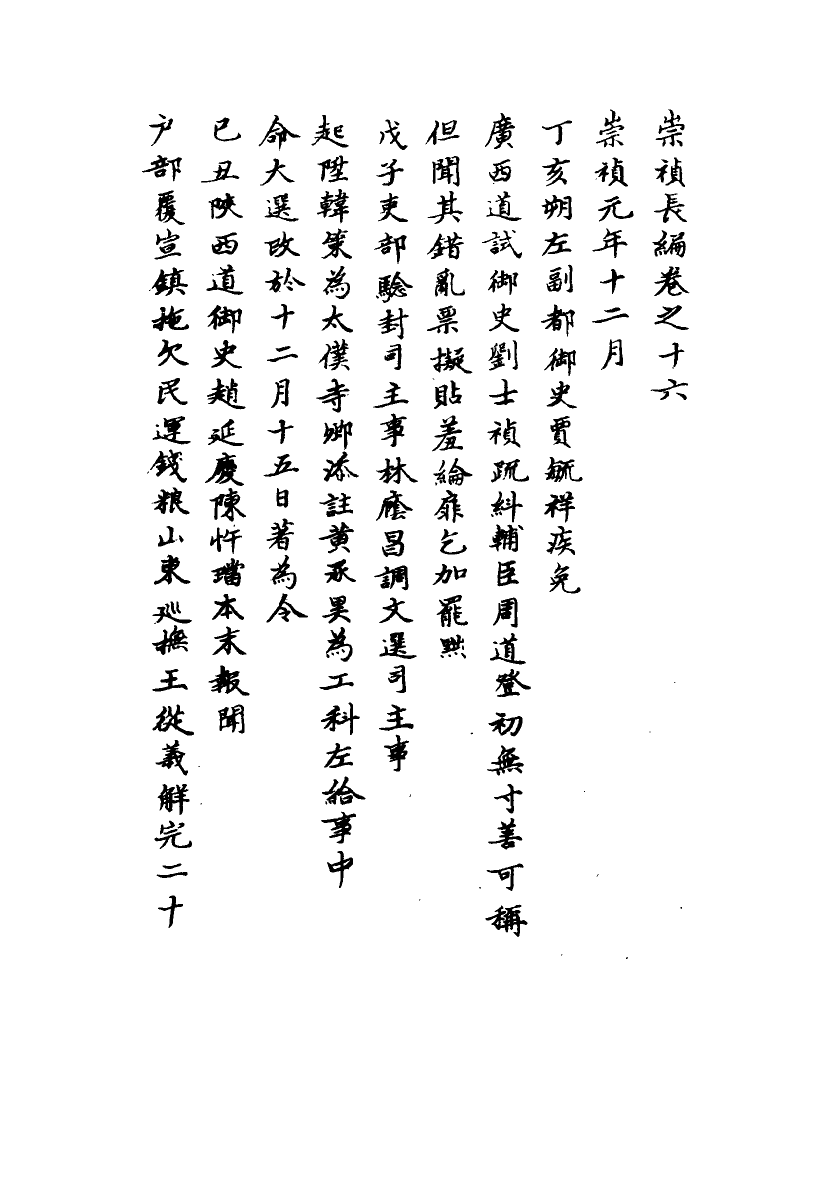 崇禎長編卷之十六
崇禎元年十二月
丁亥朔左副都御史賈毓祥疾免
廣西道試御史劉士禎疏糾輔臣周道登初無寸善可稱
但聞其錯亂票擬貼羞綸扉乞加罷黜
戊子吏部驗封司主事林應昌調文選司主事
起陞韓策為太僕寺卿添註黄承昊為工科左給事中
命大選改於十二月十五日著為令
己丑陝西道御史趙延慶陳忤璫本末報聞
户部覆宣鎮拖欠民運錢粮山東巡撫王從義觧完二十